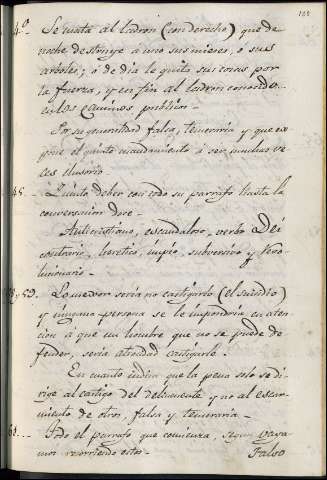 4º. Se mata al ladron (con derecho) que de
noche destruye á uno sus mieses, ó sus
arboles; ó de dia le quita sus cosas por
la fuerza, y en fin al ladron conocido
en los caminos publicos.
Por su generalidad falsa, temeraria y que ex
pone el quinto mandamiento á ser muchas ve
ces ilusorio.
45. Quinto deber con todo su parrafo hasta la
conversacion doce.
Anticristiano, escandaloso, verbo Dei
contrario, heretico, impío, subversivo y revo-
lucionario.
y 59. Lo mejor seria no castigarlo (el suicidio)
y ninguna persona se le impondria en aten-
cion á que un hombre que no se puede de
fender, seria atrocidad castigarle.
En cuanto indica que la pena solo se di-
rige al castigo del delincuente y no al escar-
miento de otros, falsa y temeraria.
61. Todo el parrafo que comienza, segun vaya
mos recorriendo estos.
Falso